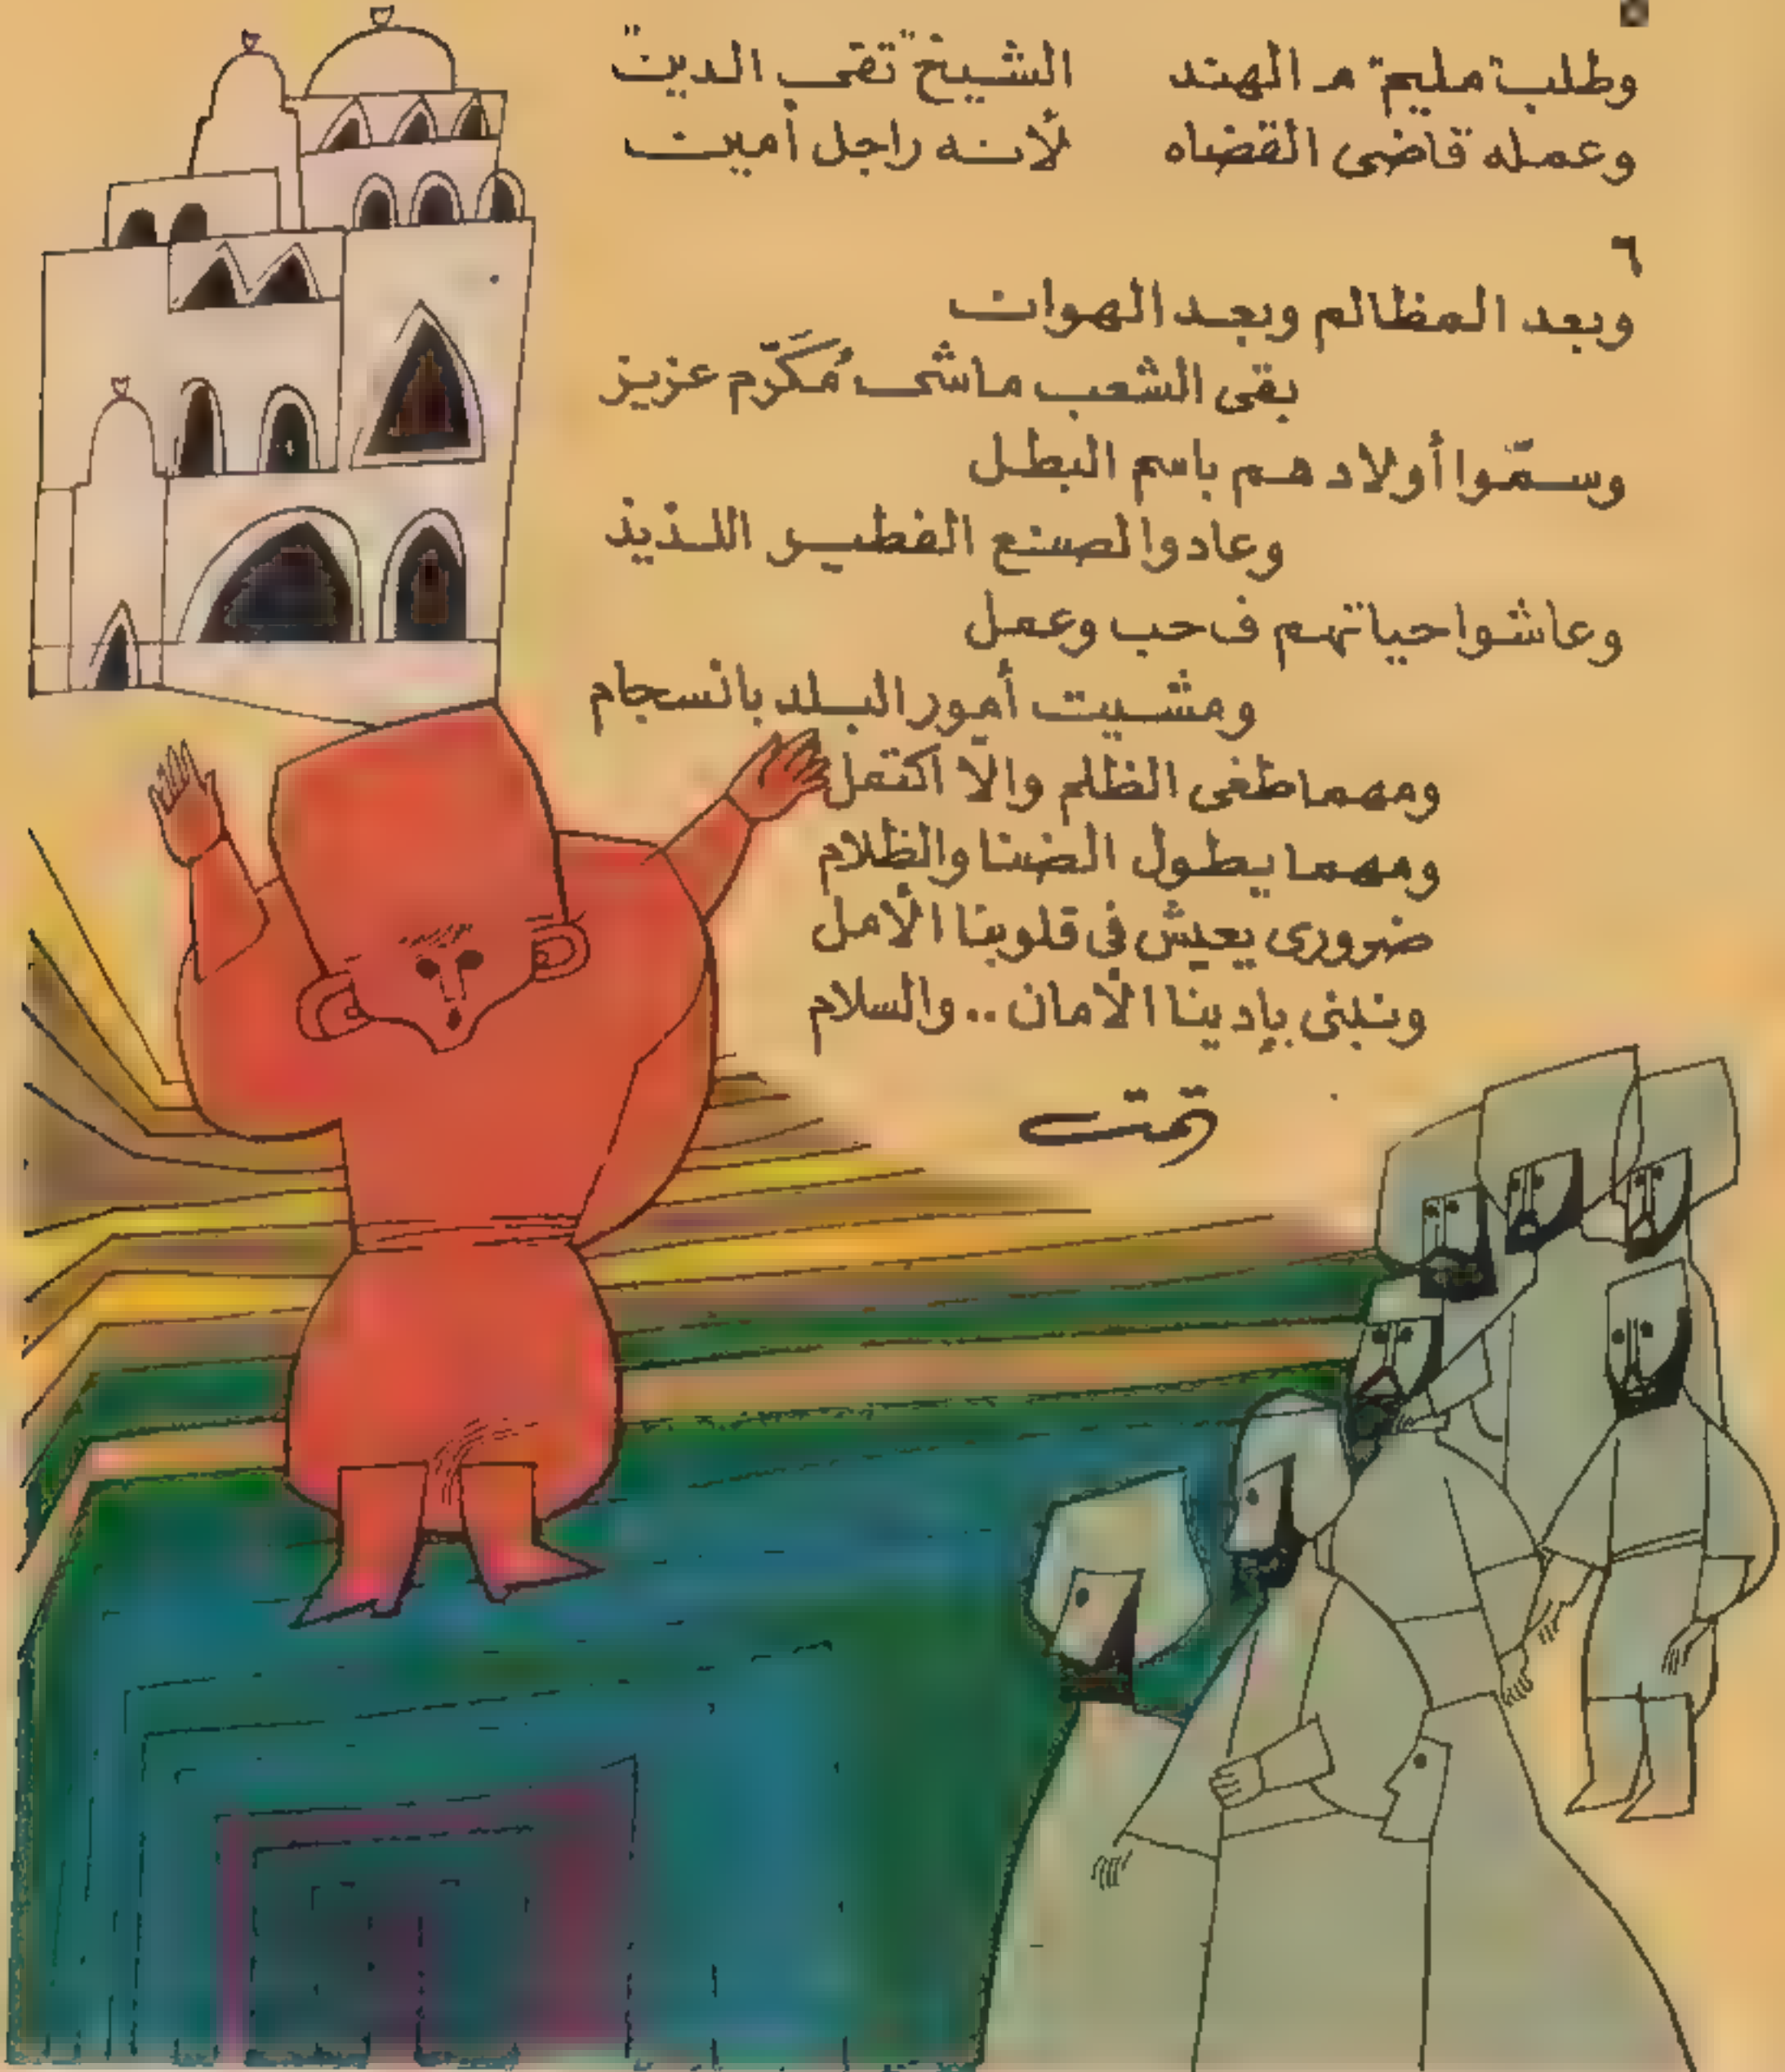 ٥
وطلب "مليم" م الهند الشيخ "تقى الدين"
وعمله قاضى القضاه لأنه راجل أمين
٦
وبعد المظالم وبعد الهوان
بقى الشعب ماشى مُكَرّم عزيز
وسمّوا أولادهم باسم البطل
وعادوا لصنع الفطير اللذيذ
وعاشوا حياتهم ف حب وعمل
ومشيت أمور البلد بانسجام
ومهما طغى الظلم والّا اكتمل
ومهما يطول الضنا والظلام
ضرورى يعيش فى قلوبنا الأمل
ونبنى بإدينا الأمان .. والسلام
تمت